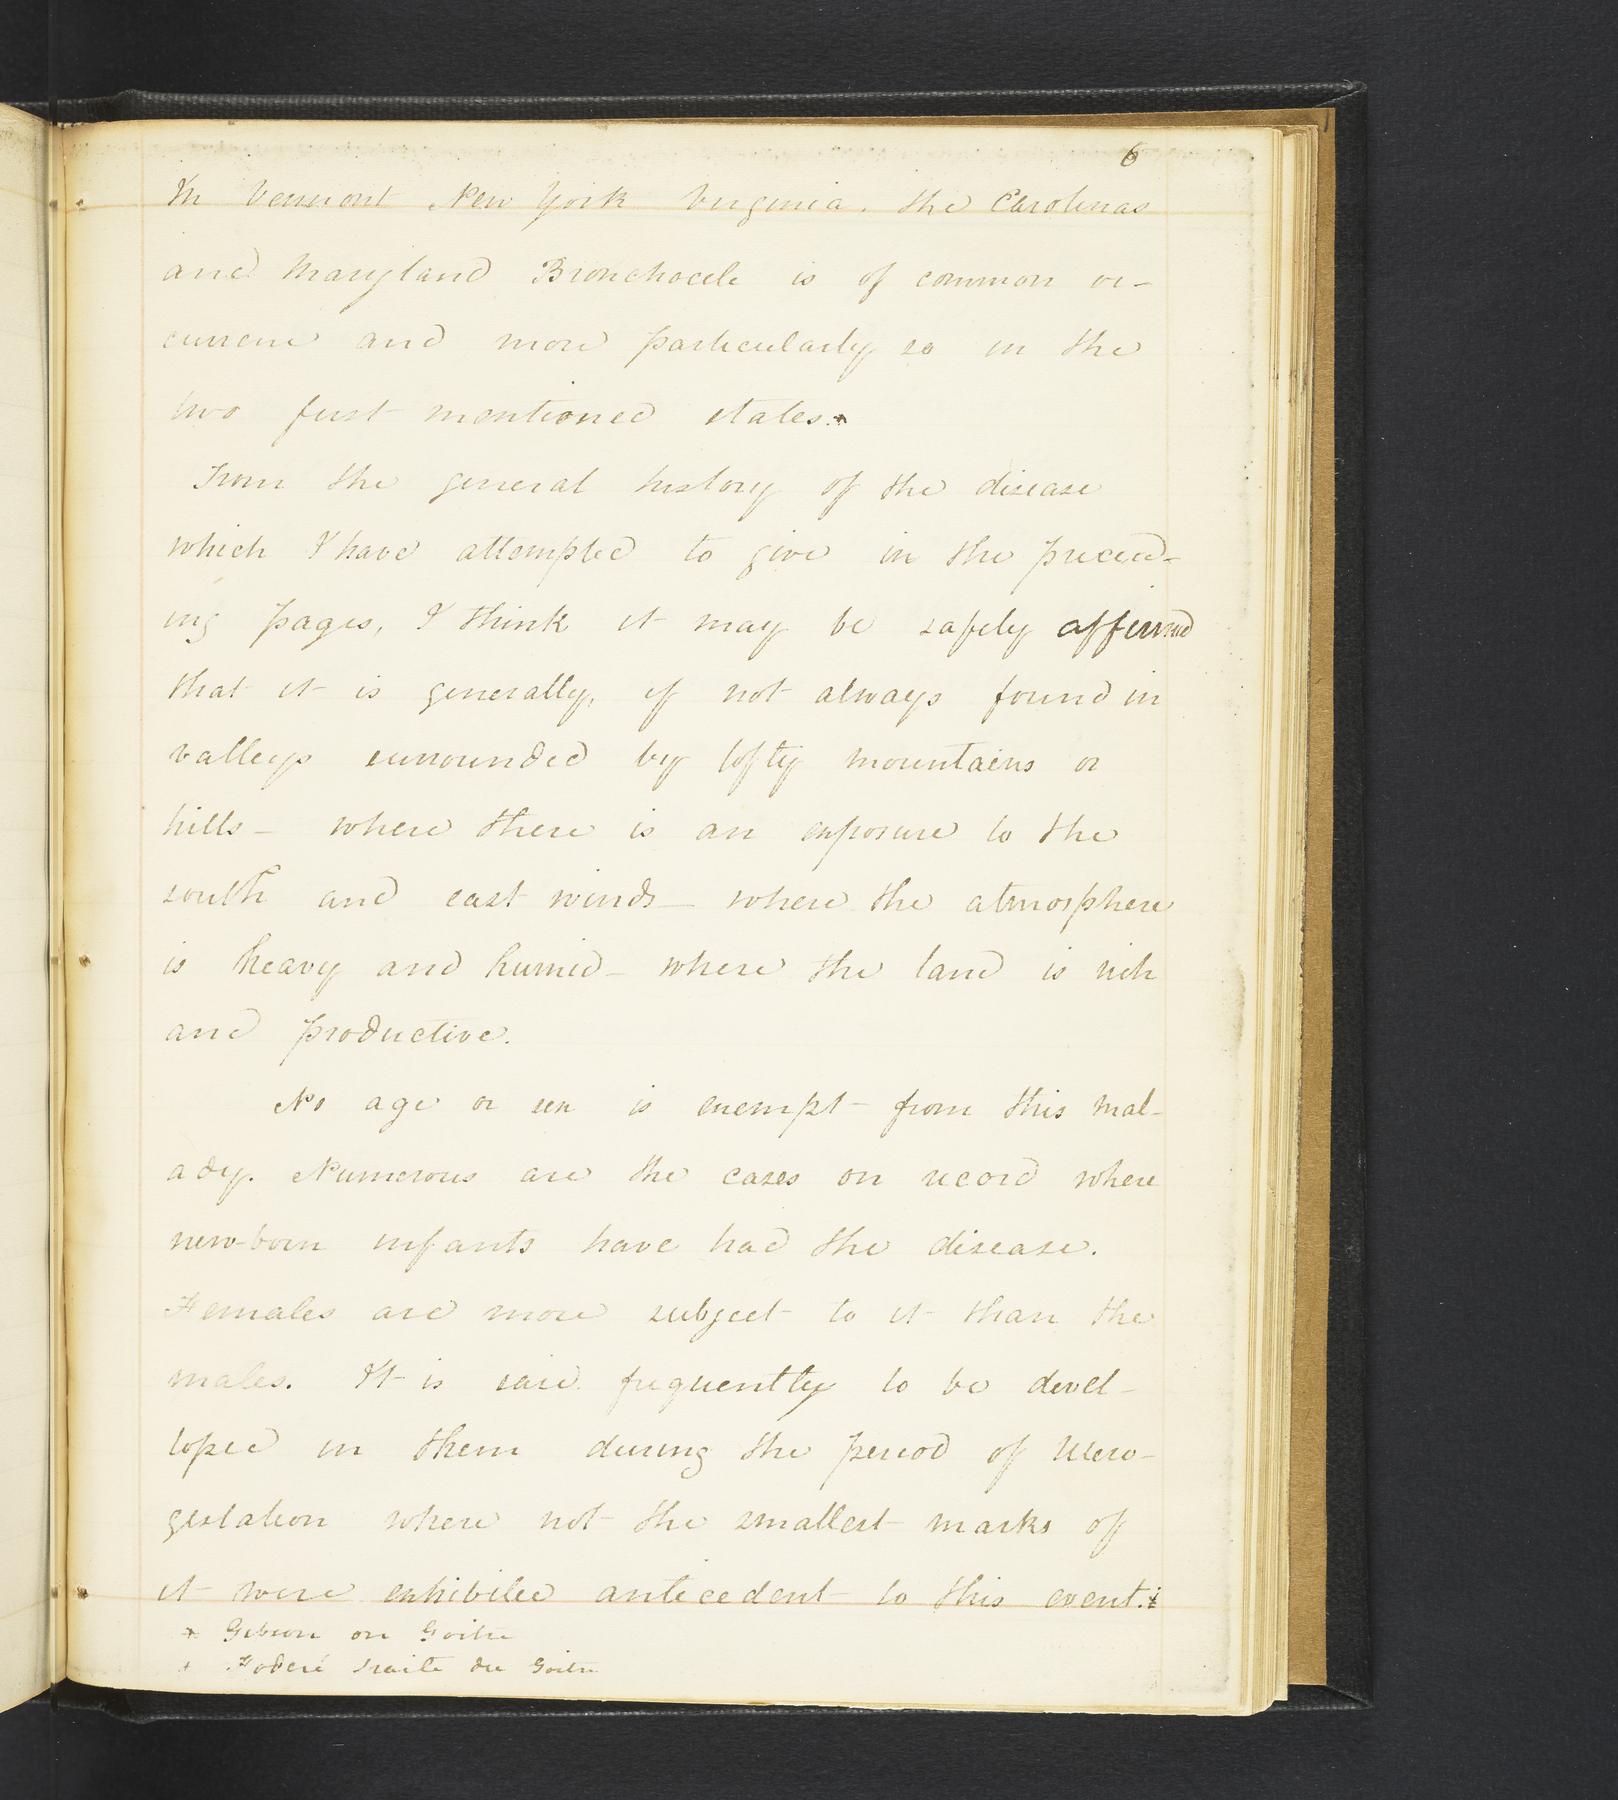 6
In Vermont New York Virginia. the Carolinas
and Maryland Bronchocele is of common oc-
currence and more particularly so in the
two first mentioned states.*
From the general history of the disease
which I have attempted to give in the preced-
ing pages, I think it may be safely affirmed
that it is generally, if not always found in
valleys surrounded by lofty mountains or
hills - where there is an exposure to the
south and east winds - where the atmosphere
is heavy and humid - where the land is rich
and productive.
No age or sex is exempt from this mal-
ady. Numerous are the cases on record where
new-born infants have had the disease.
Females are more subject to it than the
males. It is said frequently to be devel-
loped in them during the period of utero-
gestation where not the smallest marks of
it were exhibited antecedent to this event.‡
* Gibson on Goitre
+ Foderé Traite du Goitre